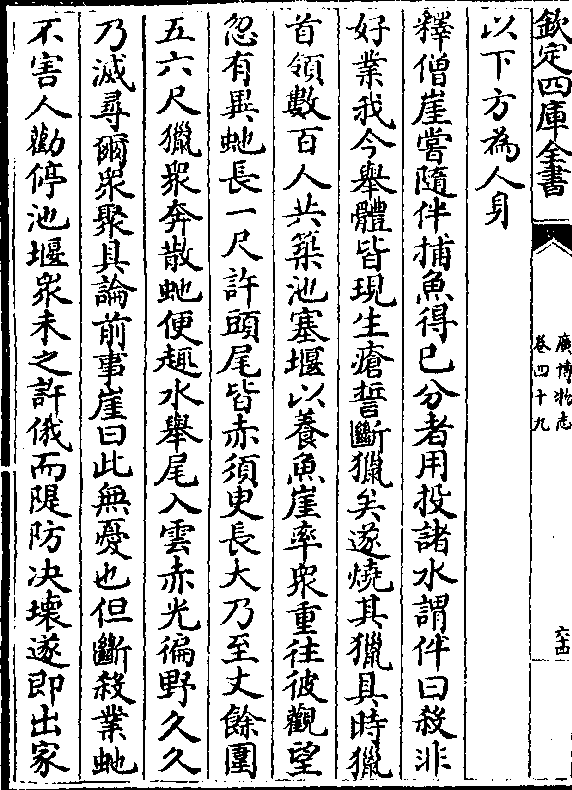 欽定四庫全書
廣博物志
卷四十九
六十四
以下方為人身
釋僧崖嘗隨伴捕魚得已分者用投諸水謂伴曰殺非
好業我今舉體皆現生瘡誓斷獵矣遂燒其獵具時獵
首領數百人共築池塞堰以養魚崖率衆重往彼觀望
忽有異虵長一尺許頭尾皆赤須臾長大乃至丈餘圍
五六尺獵衆奔散虵便趣水舉尾入雲赤光徧野久久
乃滅尋爾衆聚具論前事崖曰此無憂也但斷殺業虵
不害人勸停池堰衆未之許俄而隄防决壞遂即出家